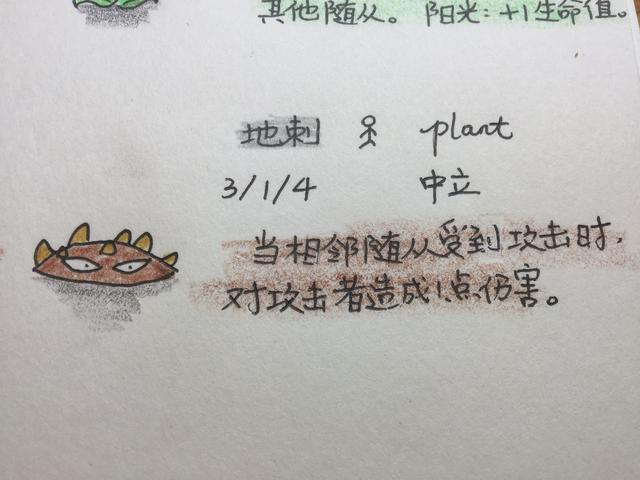 其他随从。阳光:+1生命值。
地刺 plant
3/1/4 中立
当相邻随从受到攻击时,
对攻击者造成1点伤害。